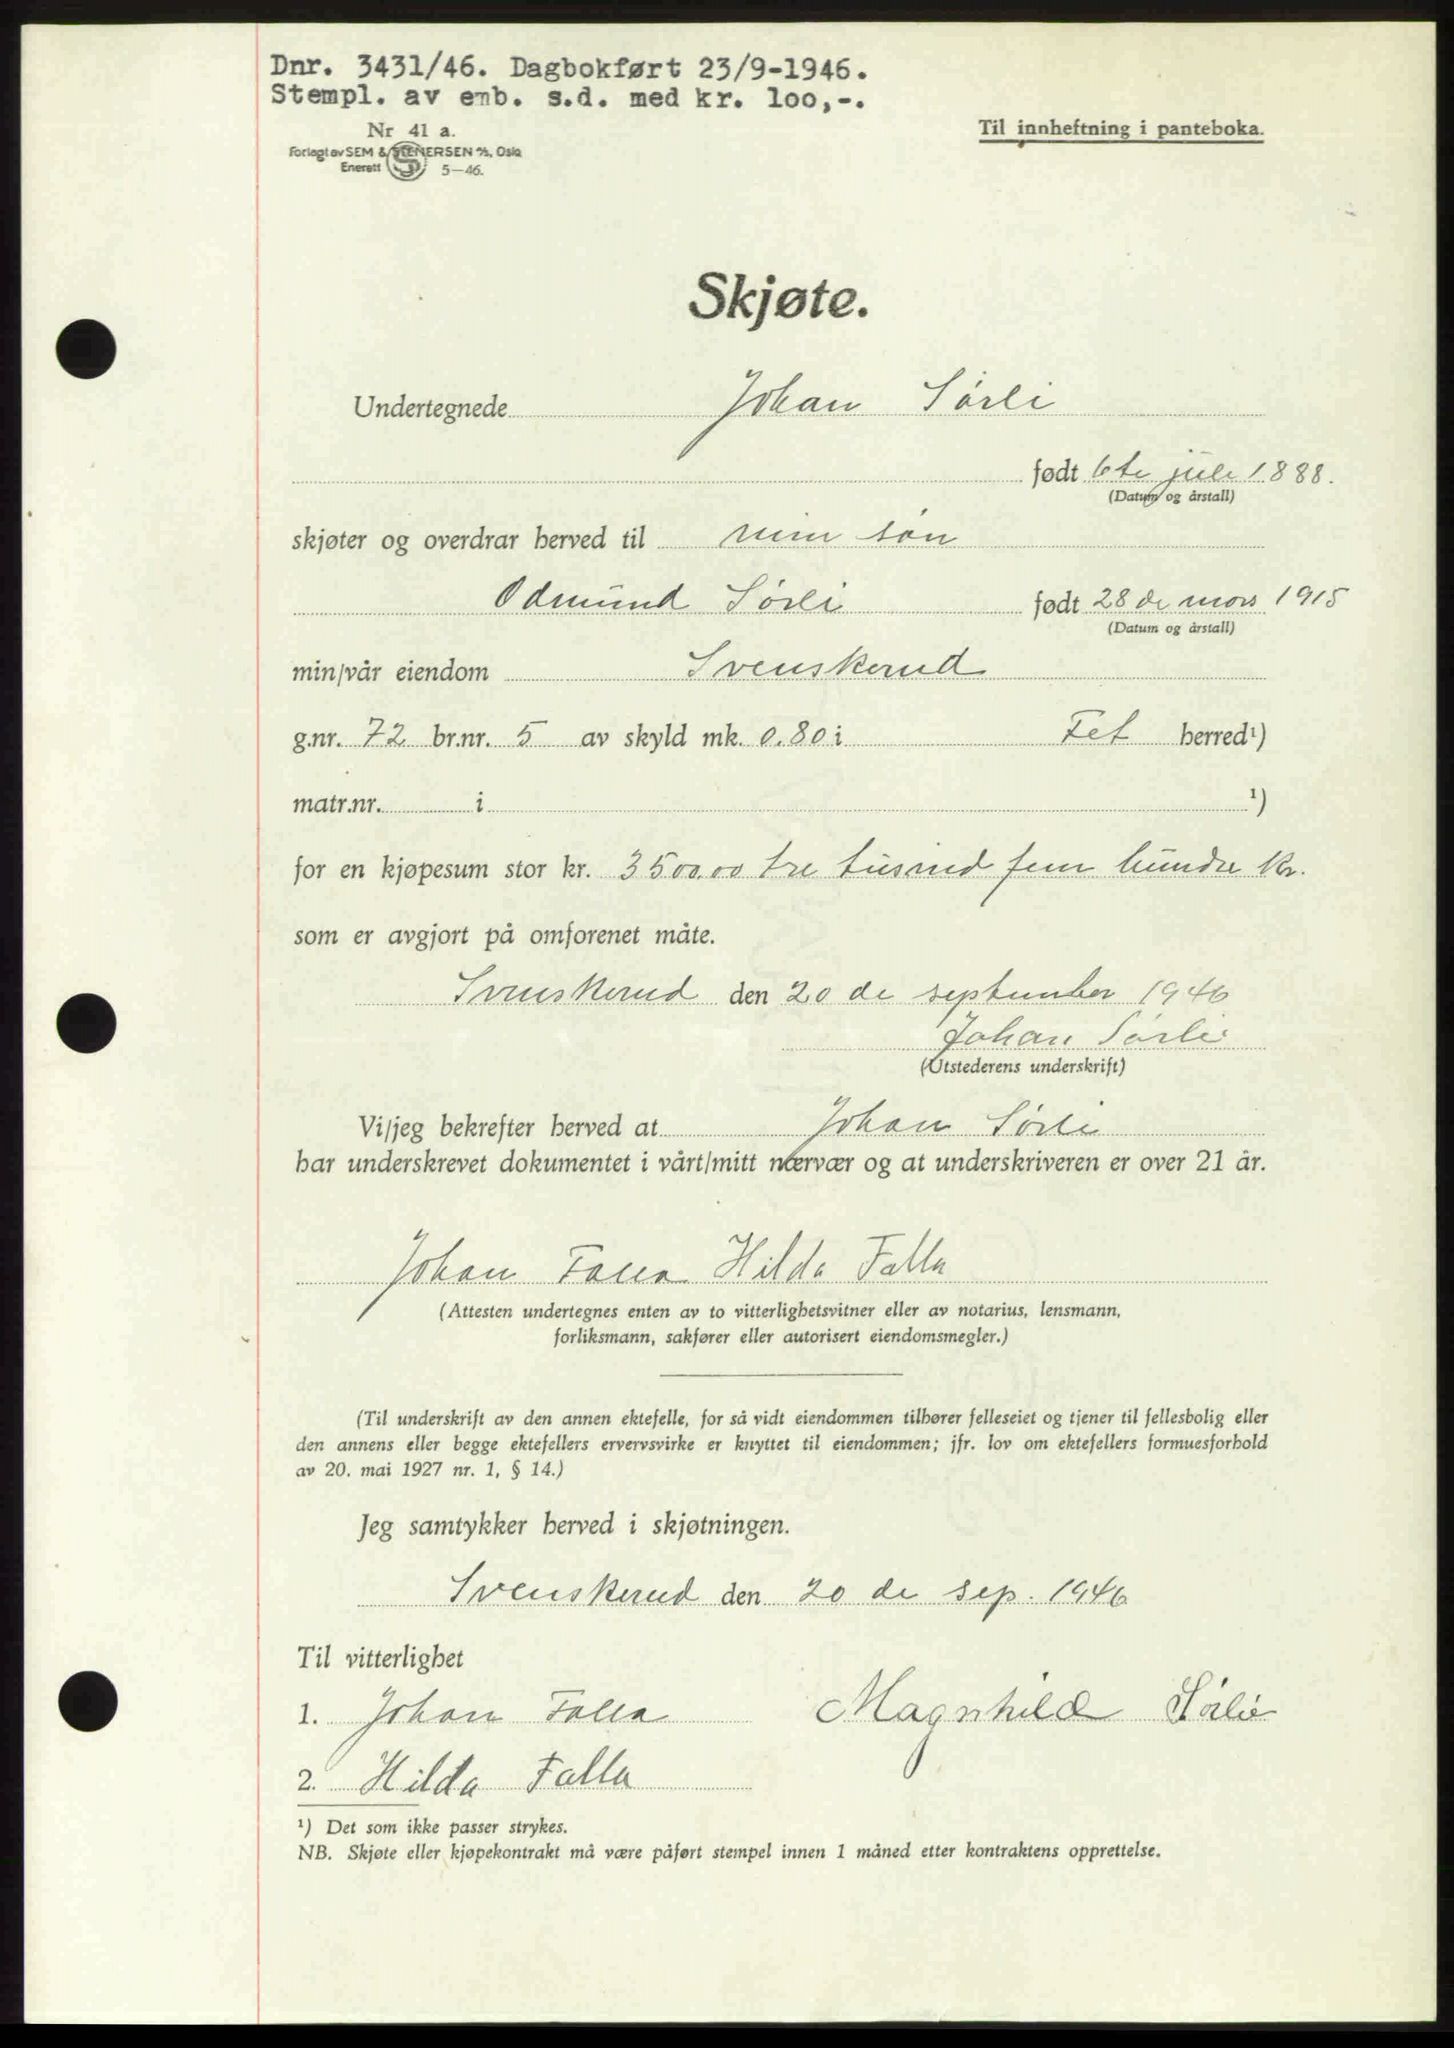 Dnr. 3431/46. Dagbokført 23/9-1946.
Stempl. av emb. s.d. med kr. 100,-.
Nr 41 a.
Forlagt av SEM & STENERSEN A/S, Oslo
Enerett 5—46.
Til innheftning i panteboka.
Skjøte.
Undertegnede Johan Sörli
født 6te juli 1888.
(Datum og årstall)
skjøter og overdrar herved til min sön
Odmund Sörli født 28 de mars 1915
(Datum og årstall)
min/vår eiendom Svenskerud
g.nr. 72 br.nr. 5 av skyld mk. 0.80 i Fet herred¹)
matr.nr. i ¹)
for en kjøpesum stor kr. 3500.00 tre tusind fem hundre kr.
som er avgjort på omforenet måte.
Svenskerud den 20 de september 1946
Johan Sörli
(Utstederens underskrift)
Vi/jeg bekrefter herved at Johan Sörli
har underskrevet dokumentet i vårt/mitt nærvær og at underskriveren er over 21 år.
Johan Falla Hilda Falla
(Attesten undertegnes enten av to vitterlighetsvitner eller av notarius, lensmann,
forliksmann, sakfører eller autorisert eiendomsmegler.)
(Til underskrift av den annen ektefelle, for så vidt eiendommen tilhører felleseiet og tjener til fellesbolig eller
den annens eller begge ektefellers ervervsvirke er knyttet til eiendommen; jfr. lov om ektefellers formuesforhold
av 20. mai 1927 nr. 1, § 14.)
Jeg samtykker herved i skjøtningen.
Svenskerud den 20 de sep. 1946
Til vitterlighet
1. Johan Falla Magnhild Sörlie
2. Hilda Falla
¹) Det som ikke passer strykes.
NB. Skjøte eller kjøpekontrakt må være påført stempel innen 1 måned etter kontraktens opprettelse.